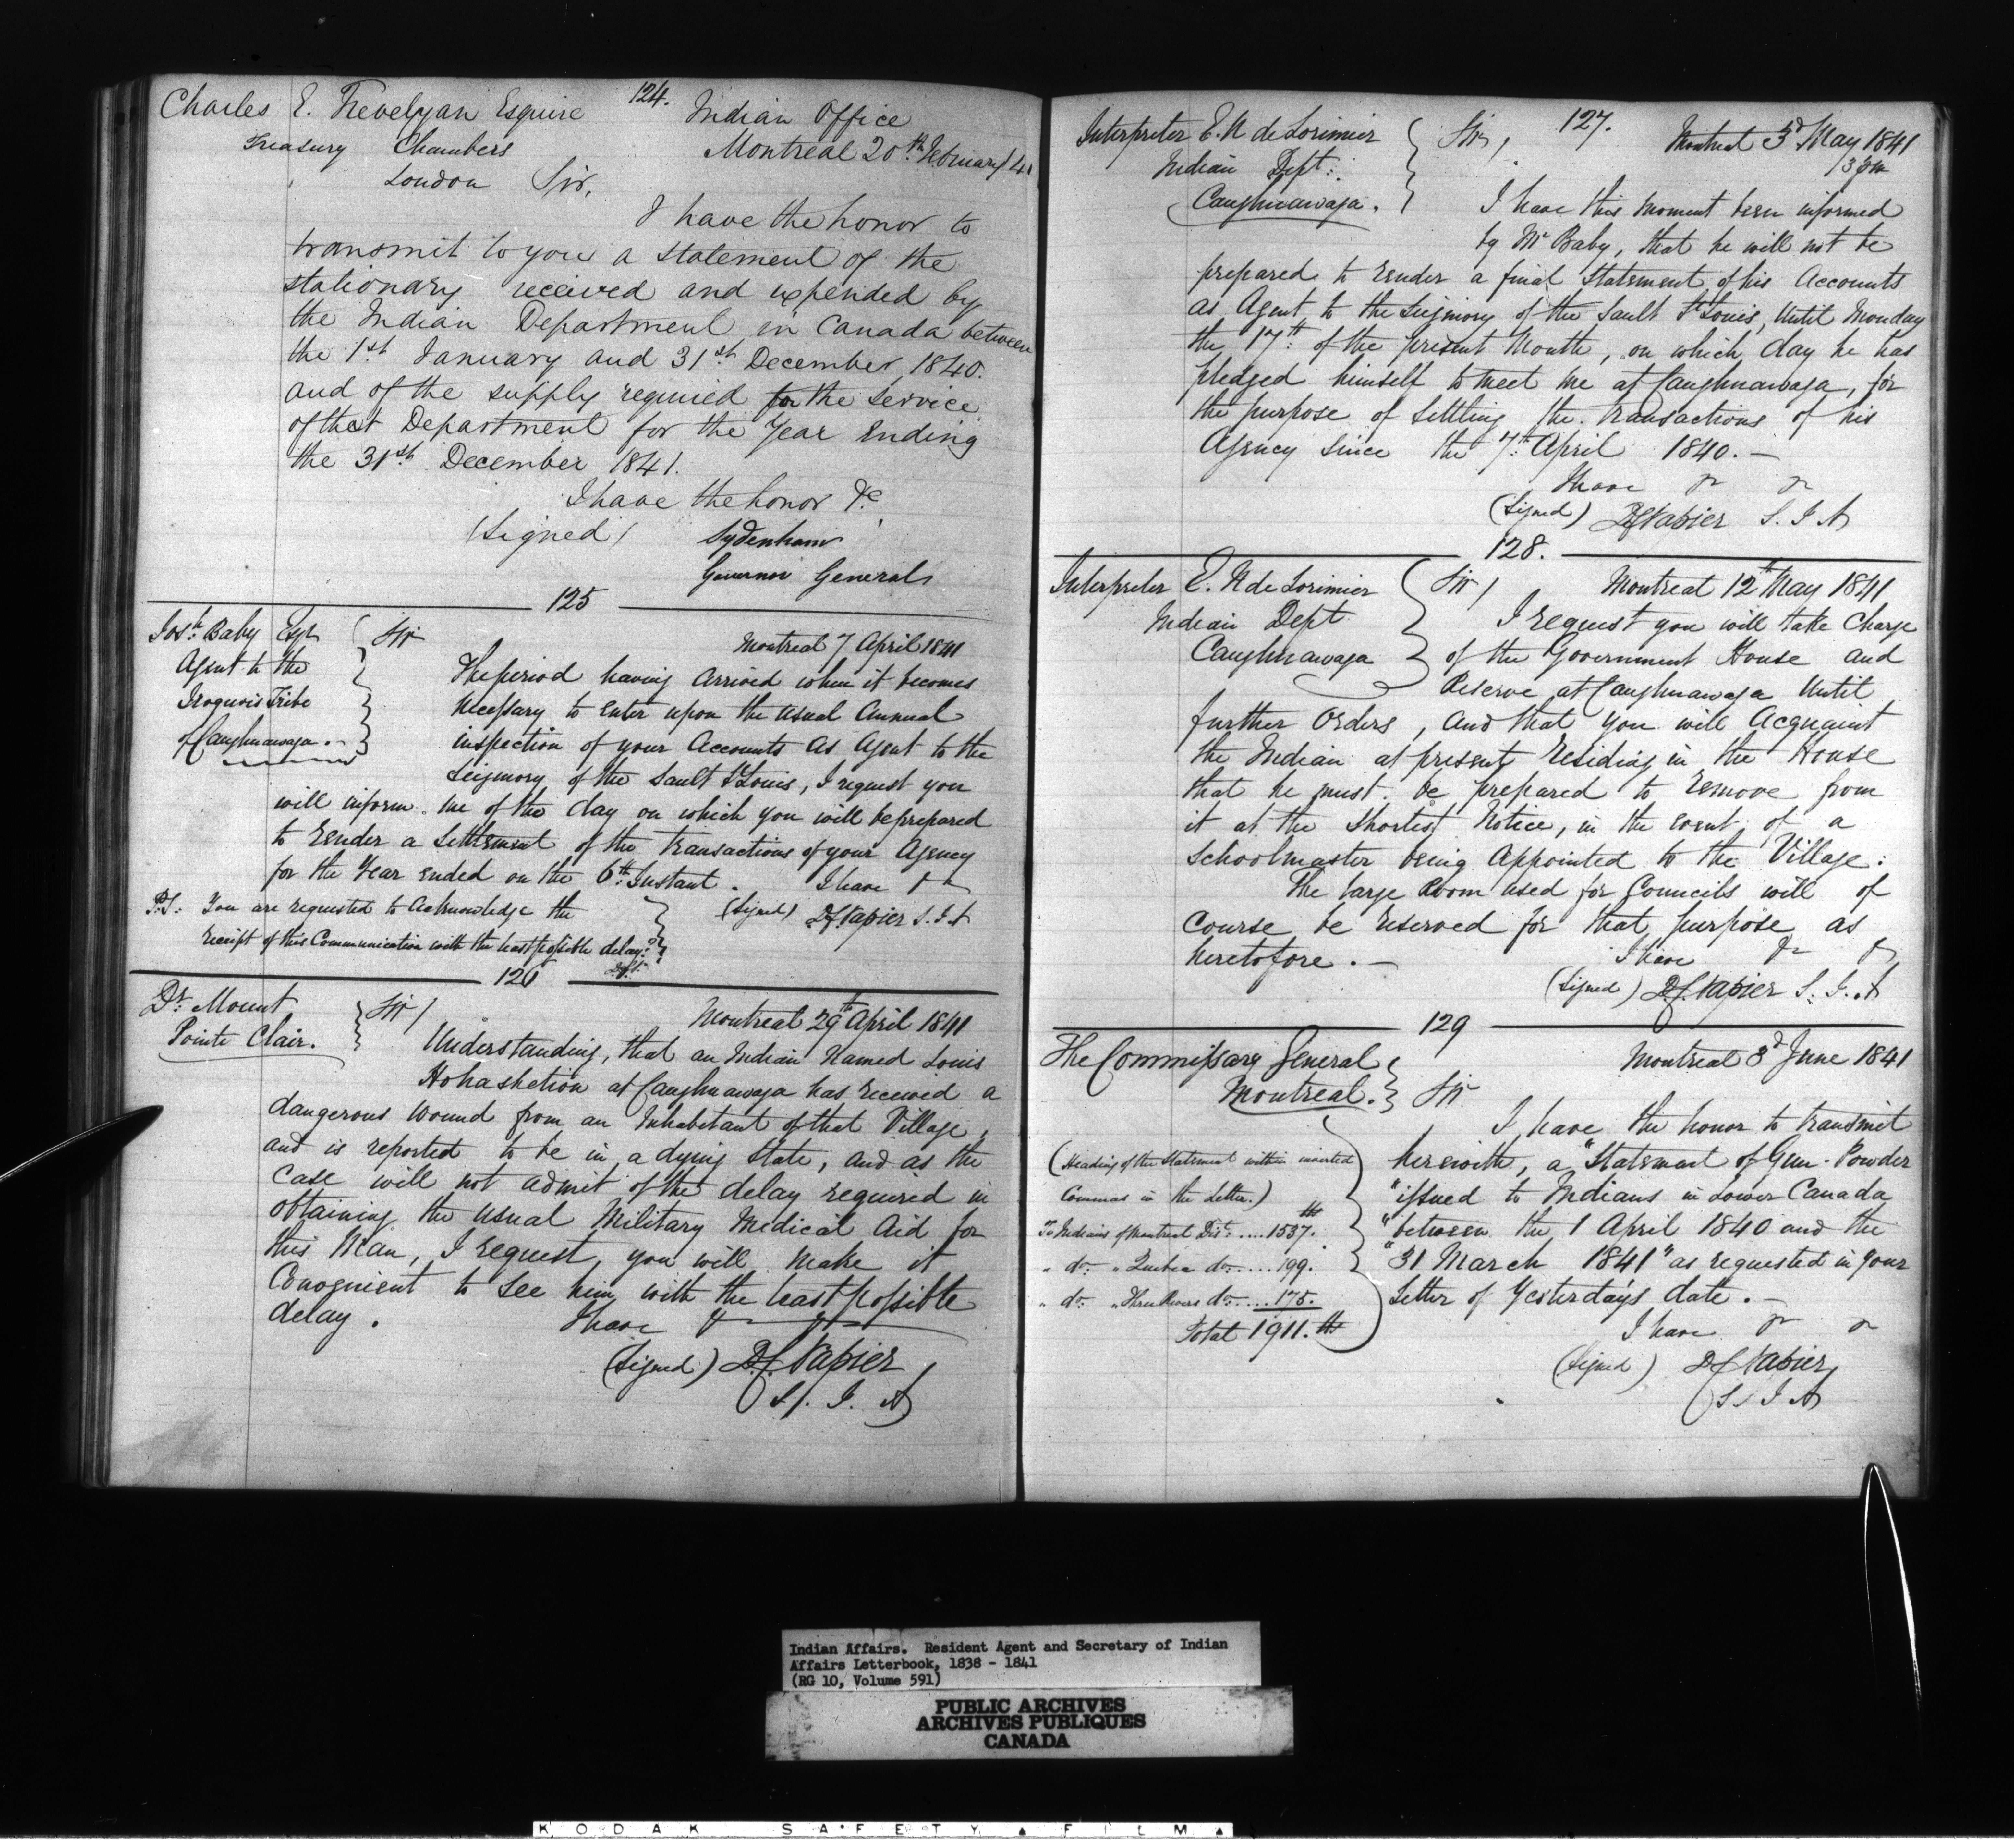 124.
Charles E. Trevelyan Esquire
Treasury Chambers
London Sir,
Indian Office
Montreal 20th February /41
I have the honor to
transmit to you a statement of the
stationary received and expended by
the Indian Department in Canada between
the 1st January and 31st December 1840.
and of the supply required for the service
of that Department for the Year Ending
the 31st December 1841.
I have the honor &c
(Signed) Sydenham
Governor General
125
Josh Baby Esqr
Agent to the
Iroquois Tribe
of Caughnawaga.
Sir
Montreal 7 April 1841
The period having arrived when it becomes
necessary to enter upon the usual Annual
inspection of your Accounts as Agent to the
Seigniory of the Sault St Louis, I request you
will inform me of the day on which you will be prepared
to render a Settlement of the transactions of your Agency
for the Year ended on the 6th Instant. I have &c
(Signed) D C Napier S. I. A
P.S: You are requested to Acknowledge the
receipt of this Communication with the least possible delay.
126
Dr Mount
Pointe Clair.
Sir/
Montreal 29th April 1841
Understanding, that an Indian Named Louis
at Caughnawaga has received a
dangerous wound from an Inhabitant of that Village,
and is reported to be in a dying state, and as the
Case will not admit of the delay required in
obtaining the usual Military Medical Aid for
this Man, I request you will make it
Convenient to see him with the least possible
delay. I have &c
(Signed) D.C. Napier
S. I. A
127.
Interpreter E. N de Lorimier
Indian Dept:
Caughnawaga.
Sir,
Montreal 3d May 1841
3 pm
I have this moment been informed
by Mr Baby, that he will not be
prepared to render a final Statement of his Accounts
as Agent to the Seigniory of the Sault St Louis, Until Monday
the 17th of the present Month, on which day he has
pledged himself to meet me at Caughnawaga, for
the purpose of Settling the transactions of his
Agency since the 7th April 1840.—
I have &c &c
(Signed) D C Napier S. I. A
128.
Interpreter E. N de Lorimier
Indian Dept
Caughnawaga
Sir/
Montreal 12th May 1841
I request you will take Charge
of the Government House and
Reserve at Caughnawaga Until
further Orders, and that you will Acquaint
the Indian at present residing in the House
that he must be prepared to remove from
it at the Shortest Notice, in the event of a
Schoolmaster being Appointed to the Village:
The large Room used for Councils will of
Course be reserved for that purpose as
heretofore.—
I have &c &c
(Signed) D C Napier S. I. A
129
The Commissary General
Montreal.
Sir
Montreal 3d June 1841
I have the honor to transmit
herewith, a "Statement of Gun-Powder
"issued to Indians in Lower Canada
"between the 1 April 1840 and the
"31 March 1841" as requested in your
Letter of Yesterday's date.—
I have &c &c
(Signed) D C Napier
S. I. A
(Heading of the Statement within inverted
Commas in the Letter.)
To Indians of Montreal Dist: .... 1537. lbs
" do: " Quebec do: .... 199.
" do: " Three Rivers do: .... 175.
Total 1911. lbs
Indian Affairs. Resident Agent and Secretary of Indian
Affairs Letterbook, 1838 - 1841
(RG 10, Volume 591)
PUBLIC ARCHIVES
ARCHIVES PUBLIQUES
CANADA
KODAK SAFETY ▲ FILM ▲